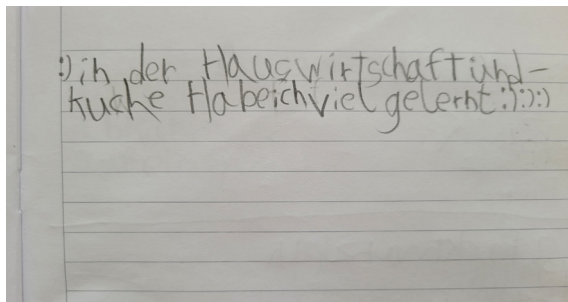 :) in der Hauswirtschaft und-
kuche Habeichviel gelernt :):):)